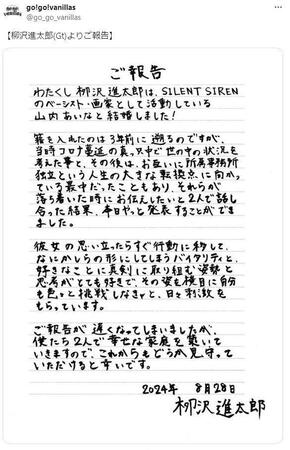 go!go!vanillas
@go_go_vanillas
【柳沢進太郎(Gt)よりご報告】
ご報告
わたくし柳沢進太郎は、SILENT SIREN
のベーシスト・画家として活動している
山内あいなと結婚しました!
籍を入れたのは3年前に遡るのですが、
当時コロナ蔓延の真っ只中で世の中の状況を
考えた事と、その後は、お互いに所属事務所
独立という人生の大きな転換点に向かっ
ている最中だったこともあり、それらが
落ち着いた時にお伝えしたいと2人で話し
合った結果、今日やっと発表することができ
ました。
彼女の思い立ったらすぐ行動に移して、
なにかしらの形にしてしまうバイタリティと、
好きなことに真剣に取り組む姿勢と
思考がとても好きで、その姿を横目に自分
も色々と挑戦しなきゃと、日々刺激を
もらっています。
ご報告が遅くなってしまいましたが、
僕たち2人で幸せな家庭を築いて
いきますので、これからもどうか見守って
いただけると幸いです。
2024年 8月28日
柳沢進太郎